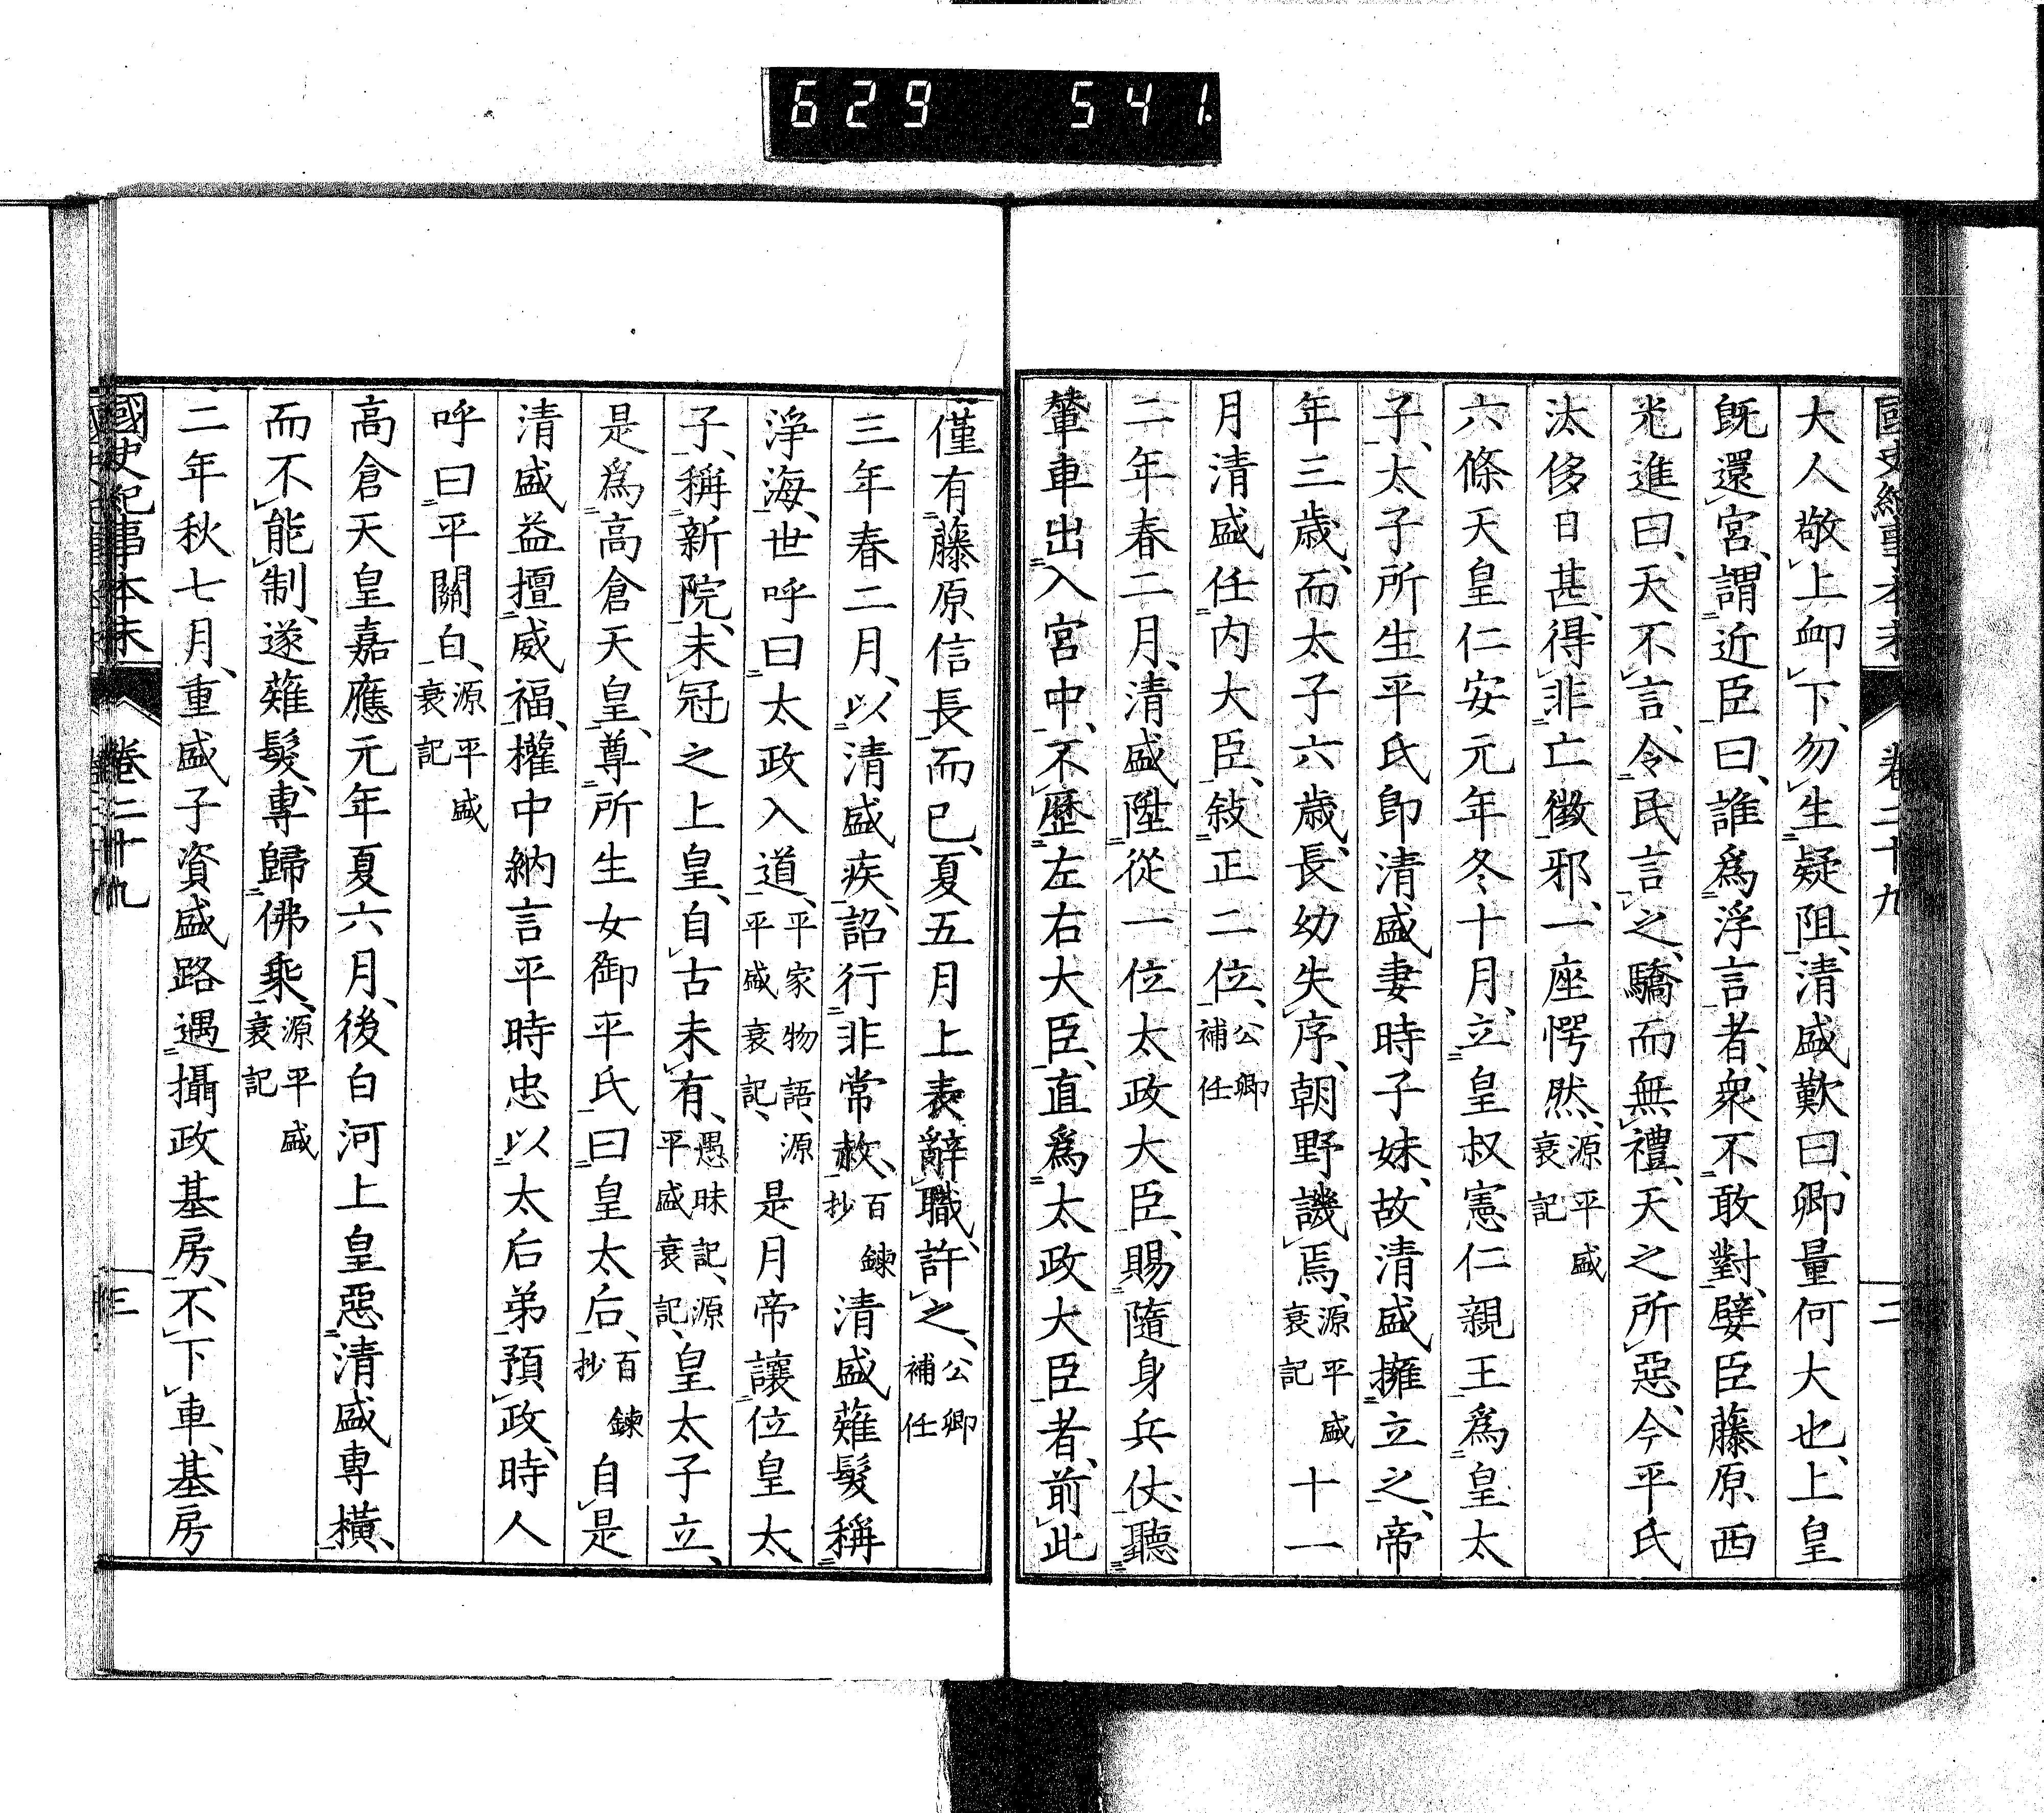 629 541.
國史紀事本末 卷二十九 二
大人敬上卹下、勿生疑阻、清盛歎曰、卿量何大也、上皇
既還宮、謂近臣曰、誰爲浮言者、衆不敢對、嬖臣藤原西
光進曰、天不言、令民言之、驕而無禮、天之所惡、今平氏
汰侈日甚、得非亡徵邪、一座愕然、源平盛衰記
六條天皇仁安元年冬十月、立皇叔憲仁親王爲皇太
子、太子所生平氏卽清盛妻時子妹、故清盛擁立之、帝
年三歲、而太子六歲、長幼失序、朝野譏焉、源平盛衰記 十一
月清盛任内大臣、敍正二位、公卿補任
二年春二月、清盛陞從一位太政大臣、賜隨身兵仗、聽
輦車出入宮中、不歷左右大臣、直爲太政大臣者、前此
僅有藤原信長而已、夏五月上表辭職、許之、公卿補任
三年春二月、以清盛疾、詔行非常赦、百鍊抄 清盛薙髮稱
淨海、世呼曰太政入道、平家物語、源平盛衰記、 是月帝讓位皇太
子、稱新院、未冠之上皇、自古未有、愚昧記、源平盛衰記、 皇太子立、
是爲高倉天皇、尊所生女御平氏曰皇太后、百鍊抄 自是
清盛益擅威福、權中納言平時忠以太后弟預政、時人
呼曰平關白、源平盛衰記
高倉天皇嘉應元年夏六月、後白河上皇惡清盛專橫、
而不能制、遂薙髮、專歸佛乘、源平盛衰記
二年秋七月、重盛子資盛路遇攝政基房、不下車、基房
國史紀事本末 卷二十九 三